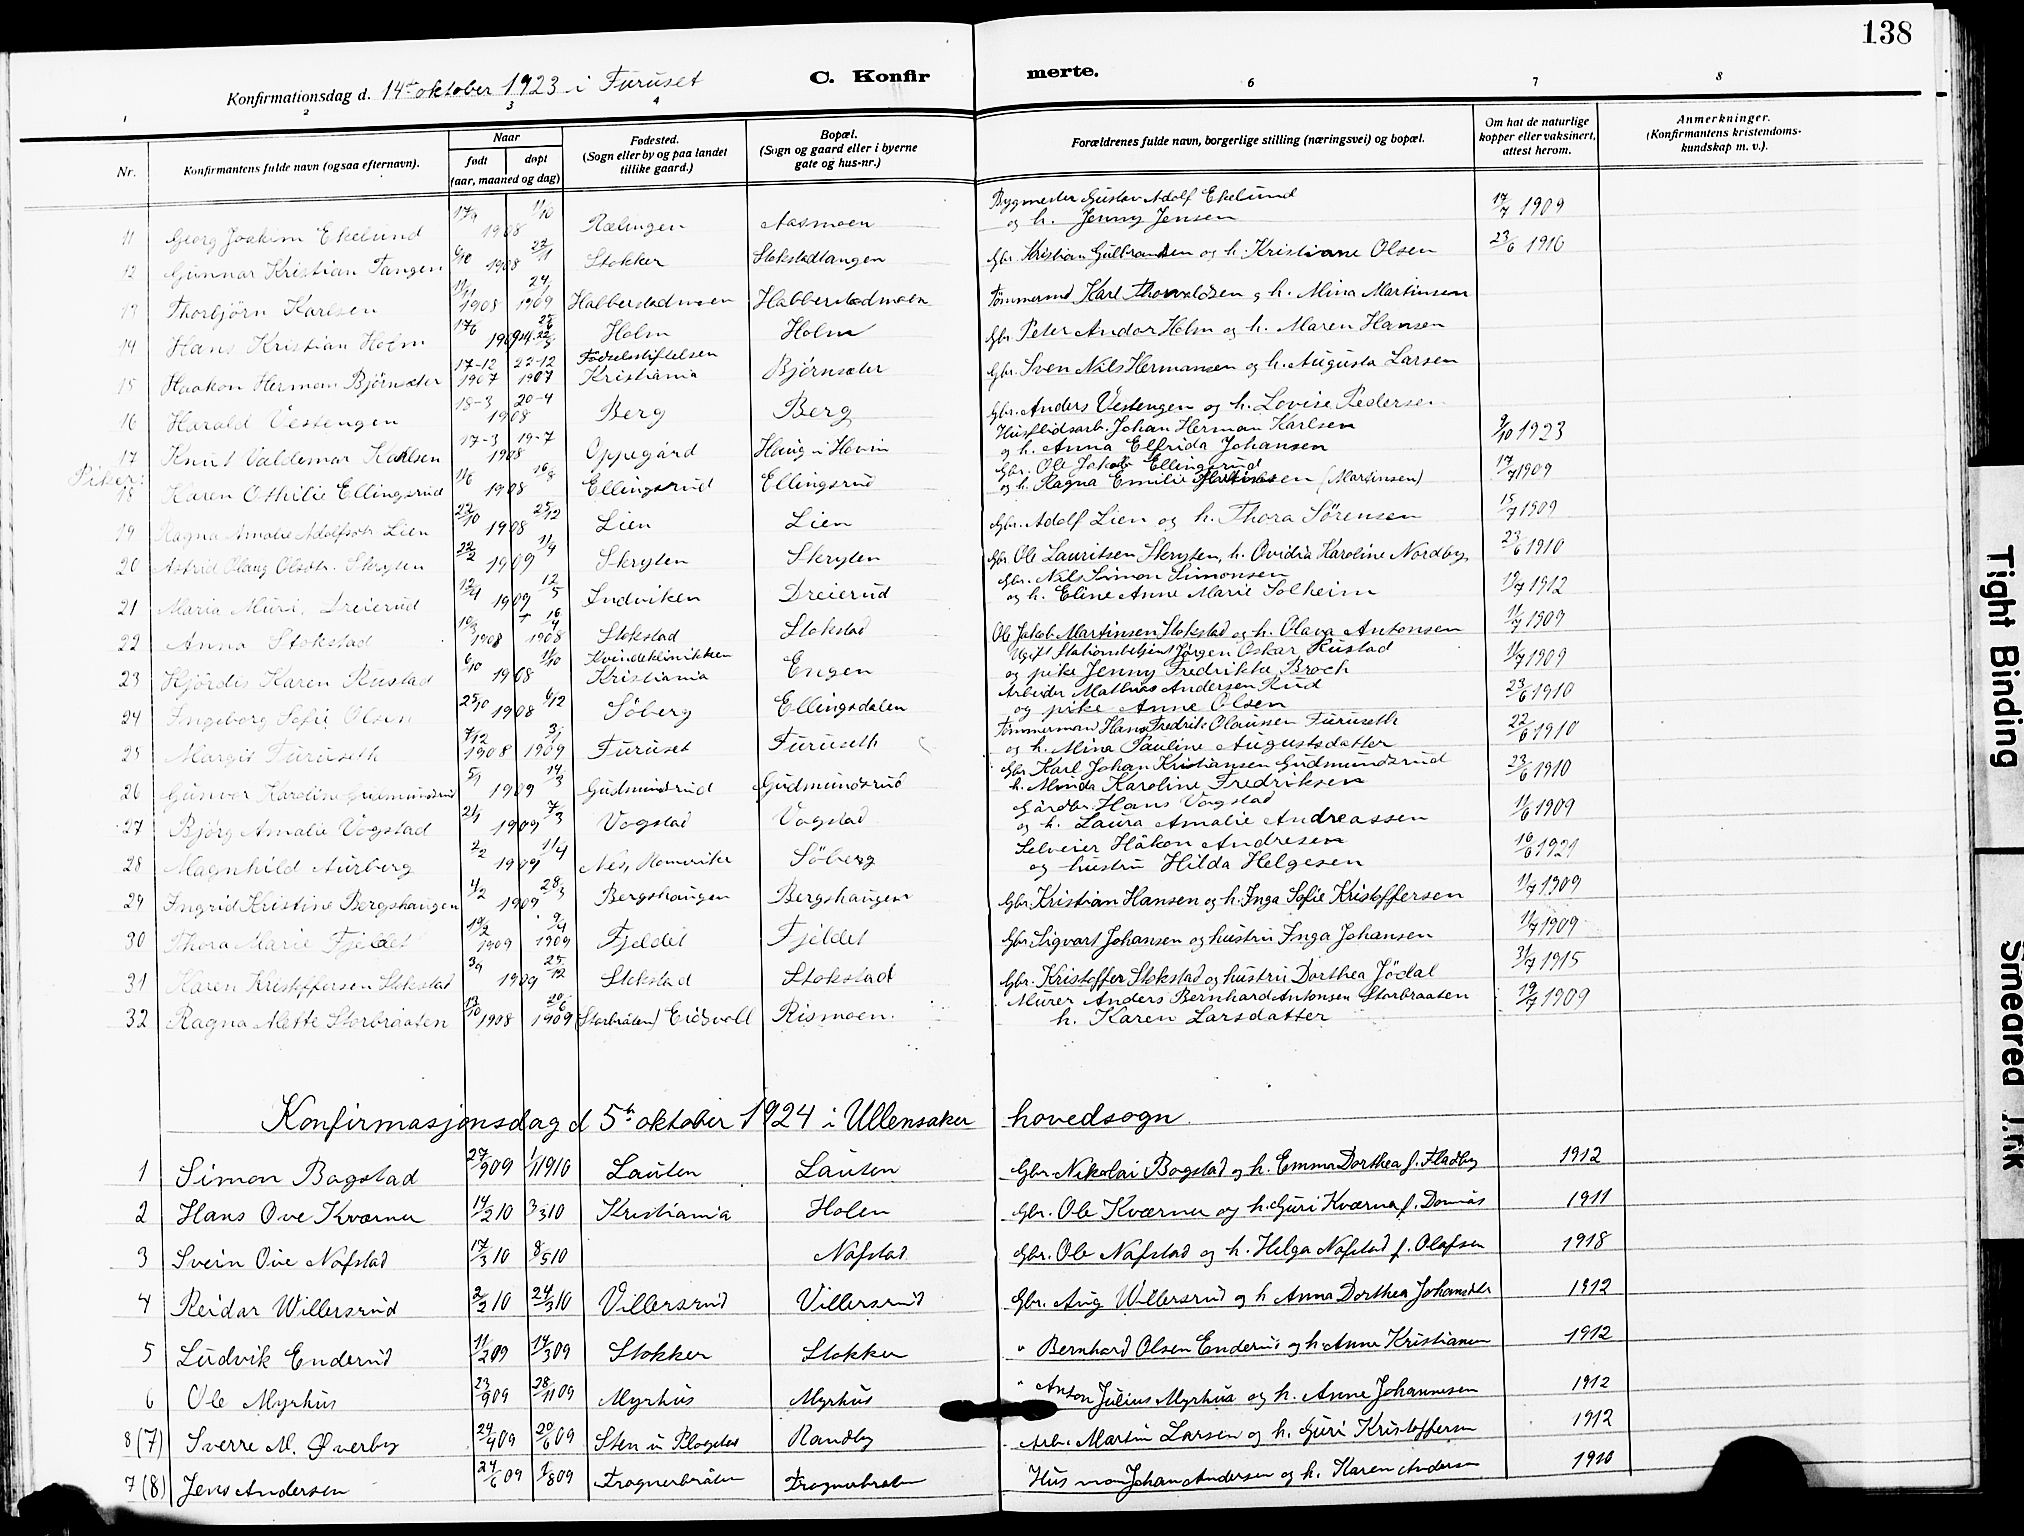 138
C. Konfirmerte.
Konfirmationsdag d. 14de oktober 1923 i Furuset
1 2 3 4 6 7 8
Nr. Konfirmantens fulde navn (ogsaa efternavn). Naar født døpt (aar, maaned og dag) Fødested. (Sogn eller by og paa landet tillike gaard.) Bopæl. (Sogn og gaard eller i byerne gate og hus-nr.) Forældrenes fulde navn, borgerlige stilling (næringsvei) og bopæl. Om hat de naturlige kopper eller vaksinert, attest herom. Anmerkninger. (Konfirmantens kristendoms-kundskap m. v.).
11 Georg Joakim Ekelund 17/9 11/10 1908 Rælingen Aasmoen Bygmester Gustav Adolf Ekelund og h. Jenny Jensen 17/7 1909
12 Gunnar Kristian Tangen 6/10 22/11 1908 Stokker Stokstadtangen Gbr. Kristian Gulbrandsen og h. Kristiane Olsen 23/6 1910
13 Thorbjörn Karlsen 11/11 1908 24/1 1909 Habberstadmoen Habberstadmoen Tømmermd Karl Thorvaldsen g h. Mina Martinsen
14 Hans Kristian Holm 17/6 1909 Holm Holm Gbr Peter Andor Holm og h. Maren Hansen
15 Haakon Herman Björnsæter 17-12 1907 22-12 1907 Fødselsstiftelsen Kristiania Björnsæter Gbr. Sven Nils Hermansen og h. Augusta Larsen
16 Harald Vestengen 18-3 20-4 1908 Berg Berg Gbr. Anders Vestengen og h. Lovise Pedersen
17 Knut Valdemar Karlsen 17-3 19-7 1908 Oppegård Haug i Hovin Husflidsarb. Johan Herman Karlsen og h. Anna Elfrida Johansen 9/10 1923
Piker:
18 Karen Othilie Ellingsrud 11/6 16/8 1908 Ellingsrud Ellingsrud Gbr. Ole Jakob Ellingsrud og h. Ragna Emilie (Martinsen) 17/7 1909
19 Ragna Amalie Adolfsdtr Lien 22/10 25/12 1908 Lien Lien Gbr. Adolf Lien og h. Thora Sørensen 15/7 1909
20 Astrid Olaug Olsdtr. Skryten 22/2 11/4 1909 Skryten Skryten Gbr. Ole Lauritsen Skryten, h. Ovidia Karoline Nordby 23/6 1910
21 Maria Muri, Dreierud 12/4 12/5 1909 Indviken Dreierud Gbr. Nils Simon Simonsen og h. Eline Anne Marie Solheim 19/7 1912
22 Anna Stokstad 10/3 1908 16/4 1908 Stokstad Stokstad Ole Jakob Martinsen Stokstad og h. Olava Antonsen 11/7 1909
23 Hjördis Karen Rustad 6/10 11/10 1908 Kvindeklinikken Kristiania Engen Ugift Stationsbetjent Jørgen Oskar Rustad og pike Jenny Fredrikke Broch 11/7 1909
24 Ingeborg Sofie Olsen 25/10 6/12 1908 Söberg Ellingsdalen Arbeider Mathias Andersen Rud og pike Anne Olsen 23/6 1910
25 Margit Furuseth 7/12 1908 3/1 1909 Furuset Furuseth Tømmermand Hans Fredrik Olaussen Furuseth og h. Mina Pauline Augustsdatter 22/6 1910
26 Gunvor Karoline Gudmundsrud 5/1 14/3 1909 Gudmundsrud Gudmundsrud Gbr Karl Johan Kristiansen Gudmundsrud h. Minda Karoline Fredriksen 23/6 1910
27 Bjørg Amalie Vogstad 21/1 7/3 1909 Vogstad Vogstad Gårdbr. Hans Vogstad og h. Laura Amalie Andreassen 11/6 1909
28 Magnhild Aurberg 2/2 11/4 1909 Nes, Romerike Söberg Selveier Håkon Andresen og hustru Hilda Helgesen 16/6 1921
29 Ingrid Kristine Bergshaugen 4/2 28/3 1909 Bergshaugen Bergshaugen Gbr. Kristian Hansen og h. Inga Sofie Kristoffersen 11/7 1909
30 Thora Marie Fjeldet 19/2 1909 9/4 1909 Fjeldet Fjeldet Gbr Sigvart Johansen og hustru Inga Johansen 11/7 1909
31 Karen Kristoffersen Stokstad 3/9 25/12 1909 Stokstad Stokstad Gbr. Kristoffer Stokstad og hustru Dorthea Jödal 31/7 1915
32 Ragna Mette Storbraaten 13/10 1908 20/6 1909 (Storbråten) Eidsvoll Rismoen Murer Anders Bernhard Antonsen Storbraaten h. Karen Larsdatter 19/7 1909
Konfirmasjonsdag d 5te oktober 1924 i Ullensaker hovedsogn
1 Simon Bogstad 27/9 09 1/1 1910 Lauten Lauten Gbr Nikolai Bogstad og h. Emma Dorthea f. Fladby 1912
2 Hans Ove Kværner 14/2 10 3/3 10 Kristiania Holen Gbr. Ole Kværner og h. Guri Kværna f. Domås 1911
3 Svein Ove Nafstad 17/3 10 8/5 10 Nafstad Gbr. Ole Nafstad og h. Helga Nafstad f. Olafsen 1918
4 Reidar Willersrud 2/2 10 24/3 10 Villersrud Villersrud Gbr. Aug Willersrud og h Anna Dorthea Johansdtr 1912
5 Ludvik Enderud 11/2 09 14/3 09 Stokker Stokker " Bernhard Olsen Enderud og h Anne Kristiansen 1912
6 Ole Myrhus 23/9 09 28/11 09 Myrhus Myrhus " Anton Julius Myrhus og h. Anne Johannesen 1912
8 (7) Sverre M. Øverby 24/4 09 20/6 09 Sten u Blogstad Randby Arb. Martin Larsen og h. Guri Kristoffersen 1912
7 (8) Jens Andersen 24/6 09 1/8 09 Trognerbråten Trognerbråten Husmann Johan Andersen og h. Karen Andersen 1910
Tight Binding
Smeared Ink